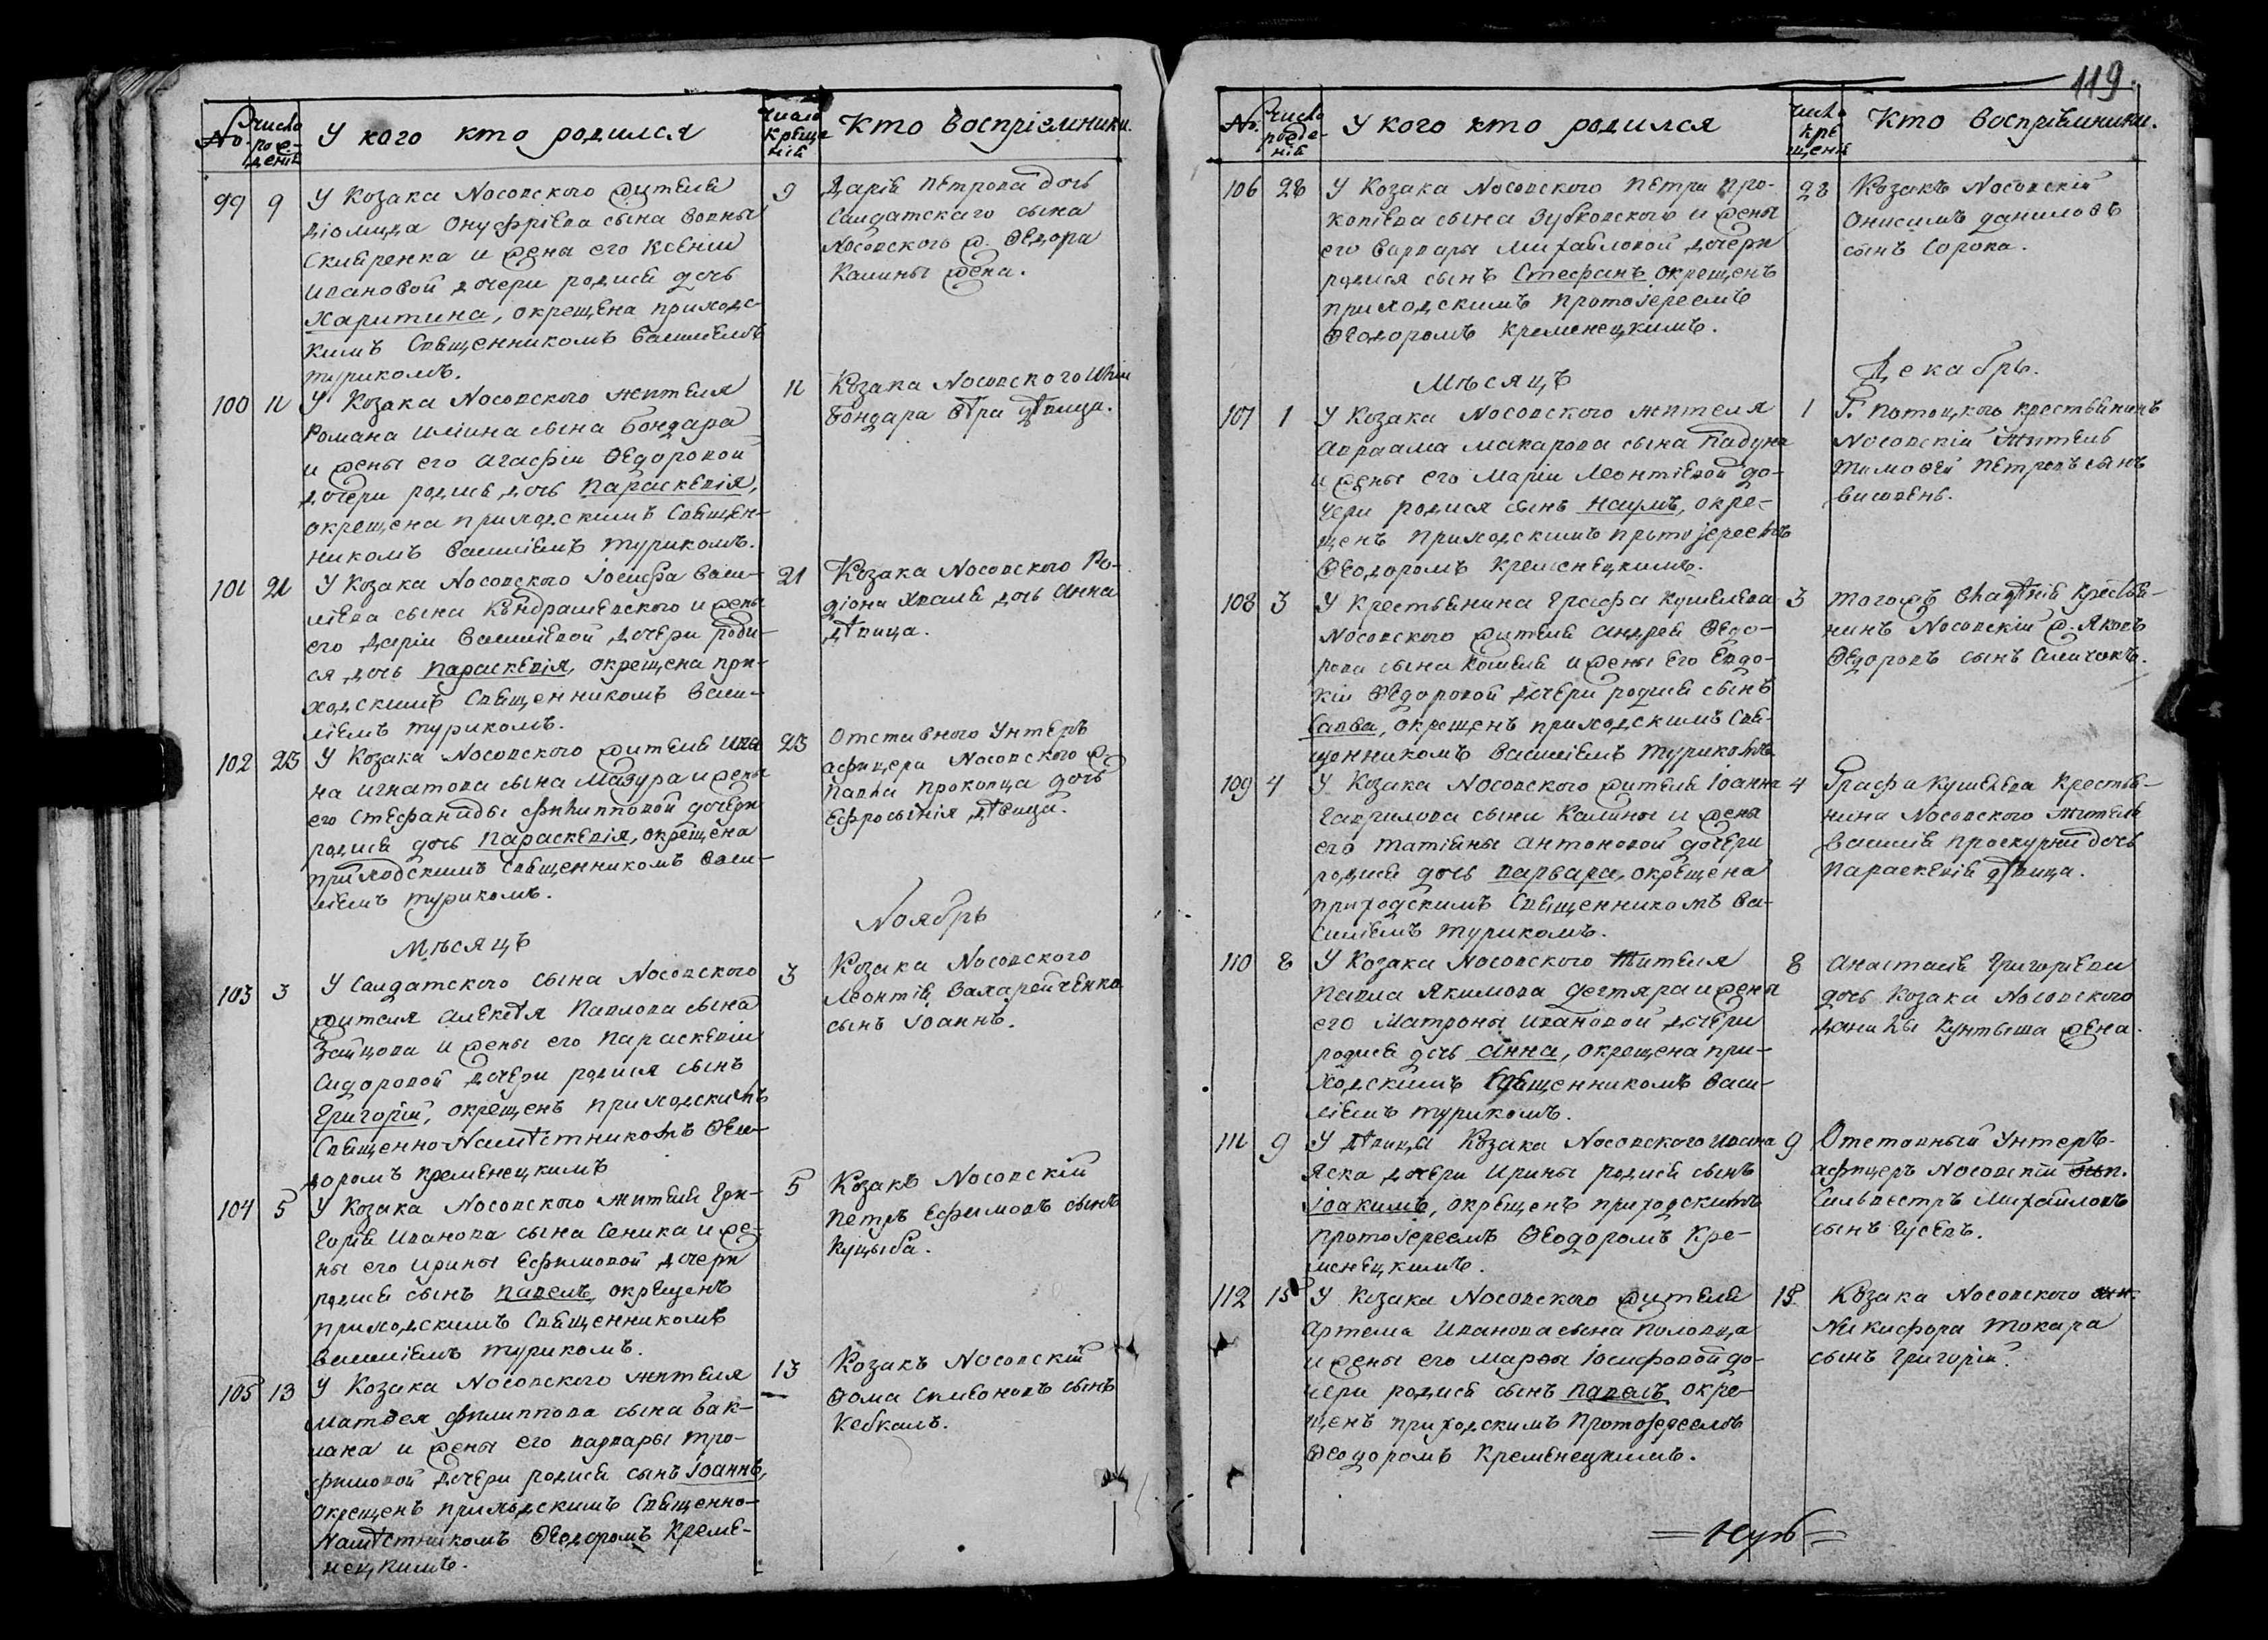 119.
No.
Число рожденія
У кого кто родился
Число крещенія
Кто воспріемники.
99 9
У Козака Носовского жителя
Діомида Онуфріева сына Вовны
Скляренка и жены его Ксеніи
Ивановой дочери родися дочь
Харитина, окрещена приходс-
кимъ Священникомъ Василіемъ
Туриком.
9
Дарія Петрова дочь
Салдатскаго сына
Носовского ж. Ѳедора
Калины жена.
100 11
У Козака Носовского жителя
Романа Иліина сына Бондара
и жены его Агафіи Ѳедоровой
дочери родися дочь Параскевія,
окрещена приходскимъ Священ-
никомъ Василіемъ Туриком.
11
Козака Носовского Иліи
Бондара дѣвица.
101 21
У Козака Носовского Іосифа Васи-
ліева сына Кондрашевского и жены
его Даріи Василіевой дочери роди-
ся дочь Параскевія, окрещена при-
ходскимъ Священникомъ Васи-
ліемъ Турикомъ.
21
Козака Носовского Ро-
діона Хваля дочь Анна
дѣвица.
102 23
У Козака Носовского жителя Ива
на Игнатова сына Мазура и жены
его Стефаниды Филипповой дочери
родися дочь Параскевія, окрещена
приходскимъ Священникомъ Васи-
ліемъ Турикомъ.
23
Отставного Унтеръ
афицера Носовского ж.
Павла Прокопца дочь
Ефросинія дѣвица.
Мѣсяцъ
Ноябрь
103 3
У Салдатского сына Носовского
жителя Алексѣя Павлова сына
Зайцова и жены его Параскевіи
Сидоровой дочери родися сынъ
Григорій, окрещенъ приходскимъ
Священно-Намѣстникомъ Ѳео-
доромъ Кременецкимъ
3
Козака Носовского
Леонтія Захарейченка
сынъ Іоаннъ.
104 5
У Козака Носовского жителя Гри-
горія Иванова сына Сеника и же-
ны его Ирины Ефимовой дочери
родися сынъ Павелъ, окрещенъ
приходскимъ Священникомъ
Василіемъ Турикомъ.
5
Козакъ Носовскій
Петръ Ефимовъ сынъ
Куцыба.
105 13
У Козака Носовского жителя
Матѳея Филиппова сына Бак-
лана и жены его Варвары Тро-
фимовой дочери родися сынъ Іоаннъ,
окрещенъ приходскимъ Священно-
Намѣстникомъ Ѳеодоромъ Креме-
нецкимъ.
13
Козакъ Носовскій
Ѳома Симеоновъ сынъ
Кебкалъ.
No.
Число рожденія
У кого кто родился
Число крещенія
Кто воспріемники.
106 28
У Козака Носовского Петра Про-
копіева сына Зубковского и жены
его Варвары Михайловой дочери
родися сынъ Стефанъ, окрещенъ
приходскимъ Протоіереемъ
Ѳеодоромъ Кременецкимъ.
28
Козакъ Носовскій
Онисимъ Даниловъ
сынъ Сорока.
Мѣсяцъ
Декабрь.
107 1
У Козака Носовского жителя
Авраама Макарова сына Падуна
и жены его Маріи Леонтіевой до-
чери родися сынъ Наумъ, окре-
щенъ приходскимъ протоіереемъ
Ѳеодоромъ Кременецкимъ.
1
Г. Потоцкого крестьянинъ
Носовскій житель
Тимоѳей Петровъ сынъ
108 3
У Крестьянина Графа Кушелева
Носовского жителя Андрея Ѳедо-
рова сына Кошеля и жены его Евдо-
кіи Ѳедоровой дочери родися сынъ
Савва, окрещенъ приходскимъ Свя-
щенникомъ Василіемъ Турикомъ
3
Тогожъ владѣнія Крестья-
нинъ Носовскій ж. Яковъ
Ѳедоровъ сынъ Сличокъ.
109 4
У Козака Носовского жителя Іоанна
Гаврилова сына Калины и жены
его Татіяны Антоновой дочери
родися дочь Варвара, окрещена
приходскимъ Священникомъ Ва-
силіемъ Турикомъ.
4
Графа Кушелева Крестья-
нина Носовского жителя
Василія Проскурни дочь
Параскевія дѣвица.
110 8
У Козака Носовского жителя
Павла Якимова Дегтяра и жены
его Матроны Ивановой дочери
родися дочь Анна, окрещена при-
ходскимъ Священникомъ Васи-
ліемъ Турикомъ.
8
Анастасія Григоріева
дочь Козака Носовского
Данилы Кунтыша жена.
111 9
У дѣвицы Козака Носовского Ивана
Яска дочери Ирины родися сынъ
Іоакимъ, окрещенъ приходскимъ
Протоіереемъ Ѳеодоромъ Кре-
менецкимъ.
9
Отставный Унтеръ-
афицеръ Носовскій
Сильвестръ Михайловъ
сынъ Гусевъ.
112 15
У Козака Носовского жителя
Артема Иванова сына Половца
и жены его Марѳы Іосифовой до-
чери родися сынъ Павелъ, окре-
щенъ приходскимъ Протоіереемъ
Ѳеодоромъ Кременецкимъ.
15.
Козака Носовского
Никифора Токара
сынъ Григорій.